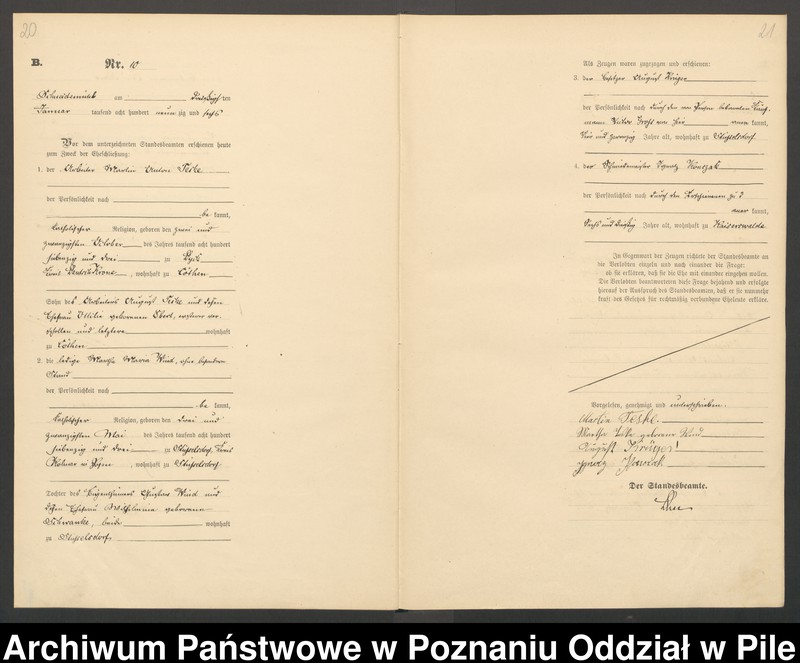 20
B. Nr. 10
Schneidemühl am
Januar tausend acht hundert neunzig und sechs
Vor dem unterzeichneten Standesbeamten erschienen heute
zum Zweck der Eheschließung:
1. der Arbeiter Martin Anton Teske
der Persönlichkeit nach
be kannt,
katholischer Religion, geboren den zwei und
zwanzigsten October des Jahres tausend acht hundert
siebenzig und drei zu
Kreis Deutsch Krone, wohnhaft zu
Sohn des Arbeiters August Teske und dessen
Ehefrau Ottilie geborenen Ebert,
und letztere wohnhaft
zu
2. die ledige Martha Maria Wind, ohne besonderen
Stand
der Persönlichkeit nach
be kannt,
katholischer Religion, geboren den drei und
zwanzigsten Mai des Jahres tausend acht hundert
siebenzig und drei zu Stüsselsdorf, Kreis
Kolmar in Posen, wohnhaft zu Stüsselsdorf
Tochter des Eigenthümers Wind und
dessen Ehefrau Wilhelmine geborenen
Schwanke, beide wohnhaft
zu Stüsselsdorf
21
Als Zeugen waren zugezogen und erschienen:
3. der Besitzer August Krüger
der Persönlichkeit nach durch den von Person bekannten Kauf-
mann von hier aner kannt,
vier und zwanzig Jahre alt, wohnhaft zu Stüsselsdorf
4. der Schmiedemeister Ignatz
der Persönlichkeit nach durch den Erschienenen zu 3
aner kannt,
sechs und dreißig Jahre alt, wohnhaft zu Kaiserswalde
In Gegenwart der Zeugen richtete der Standesbeamte an
die Verlobten einzeln und nach einander die Frage:
ob sie erklären, daß sie die Ehe mit einander eingehen wollen.
Die Verlobten beantworteten diese Frage bejahend und erfolgte
hierauf der Ausspruch des Standesbeamten, daß er sie nunmehr
kraft des Gesetzes für rechtmäßig verbundene Eheleute erkläre.
Vorgelesen, genehmigt und unterschrieben.
Martin Teske.
Martha Teske geborene Wind
August Krüger
Ignatz
Der Standesbeamte.
Archiwum Państwowe w Poznaniu Oddział w Pile